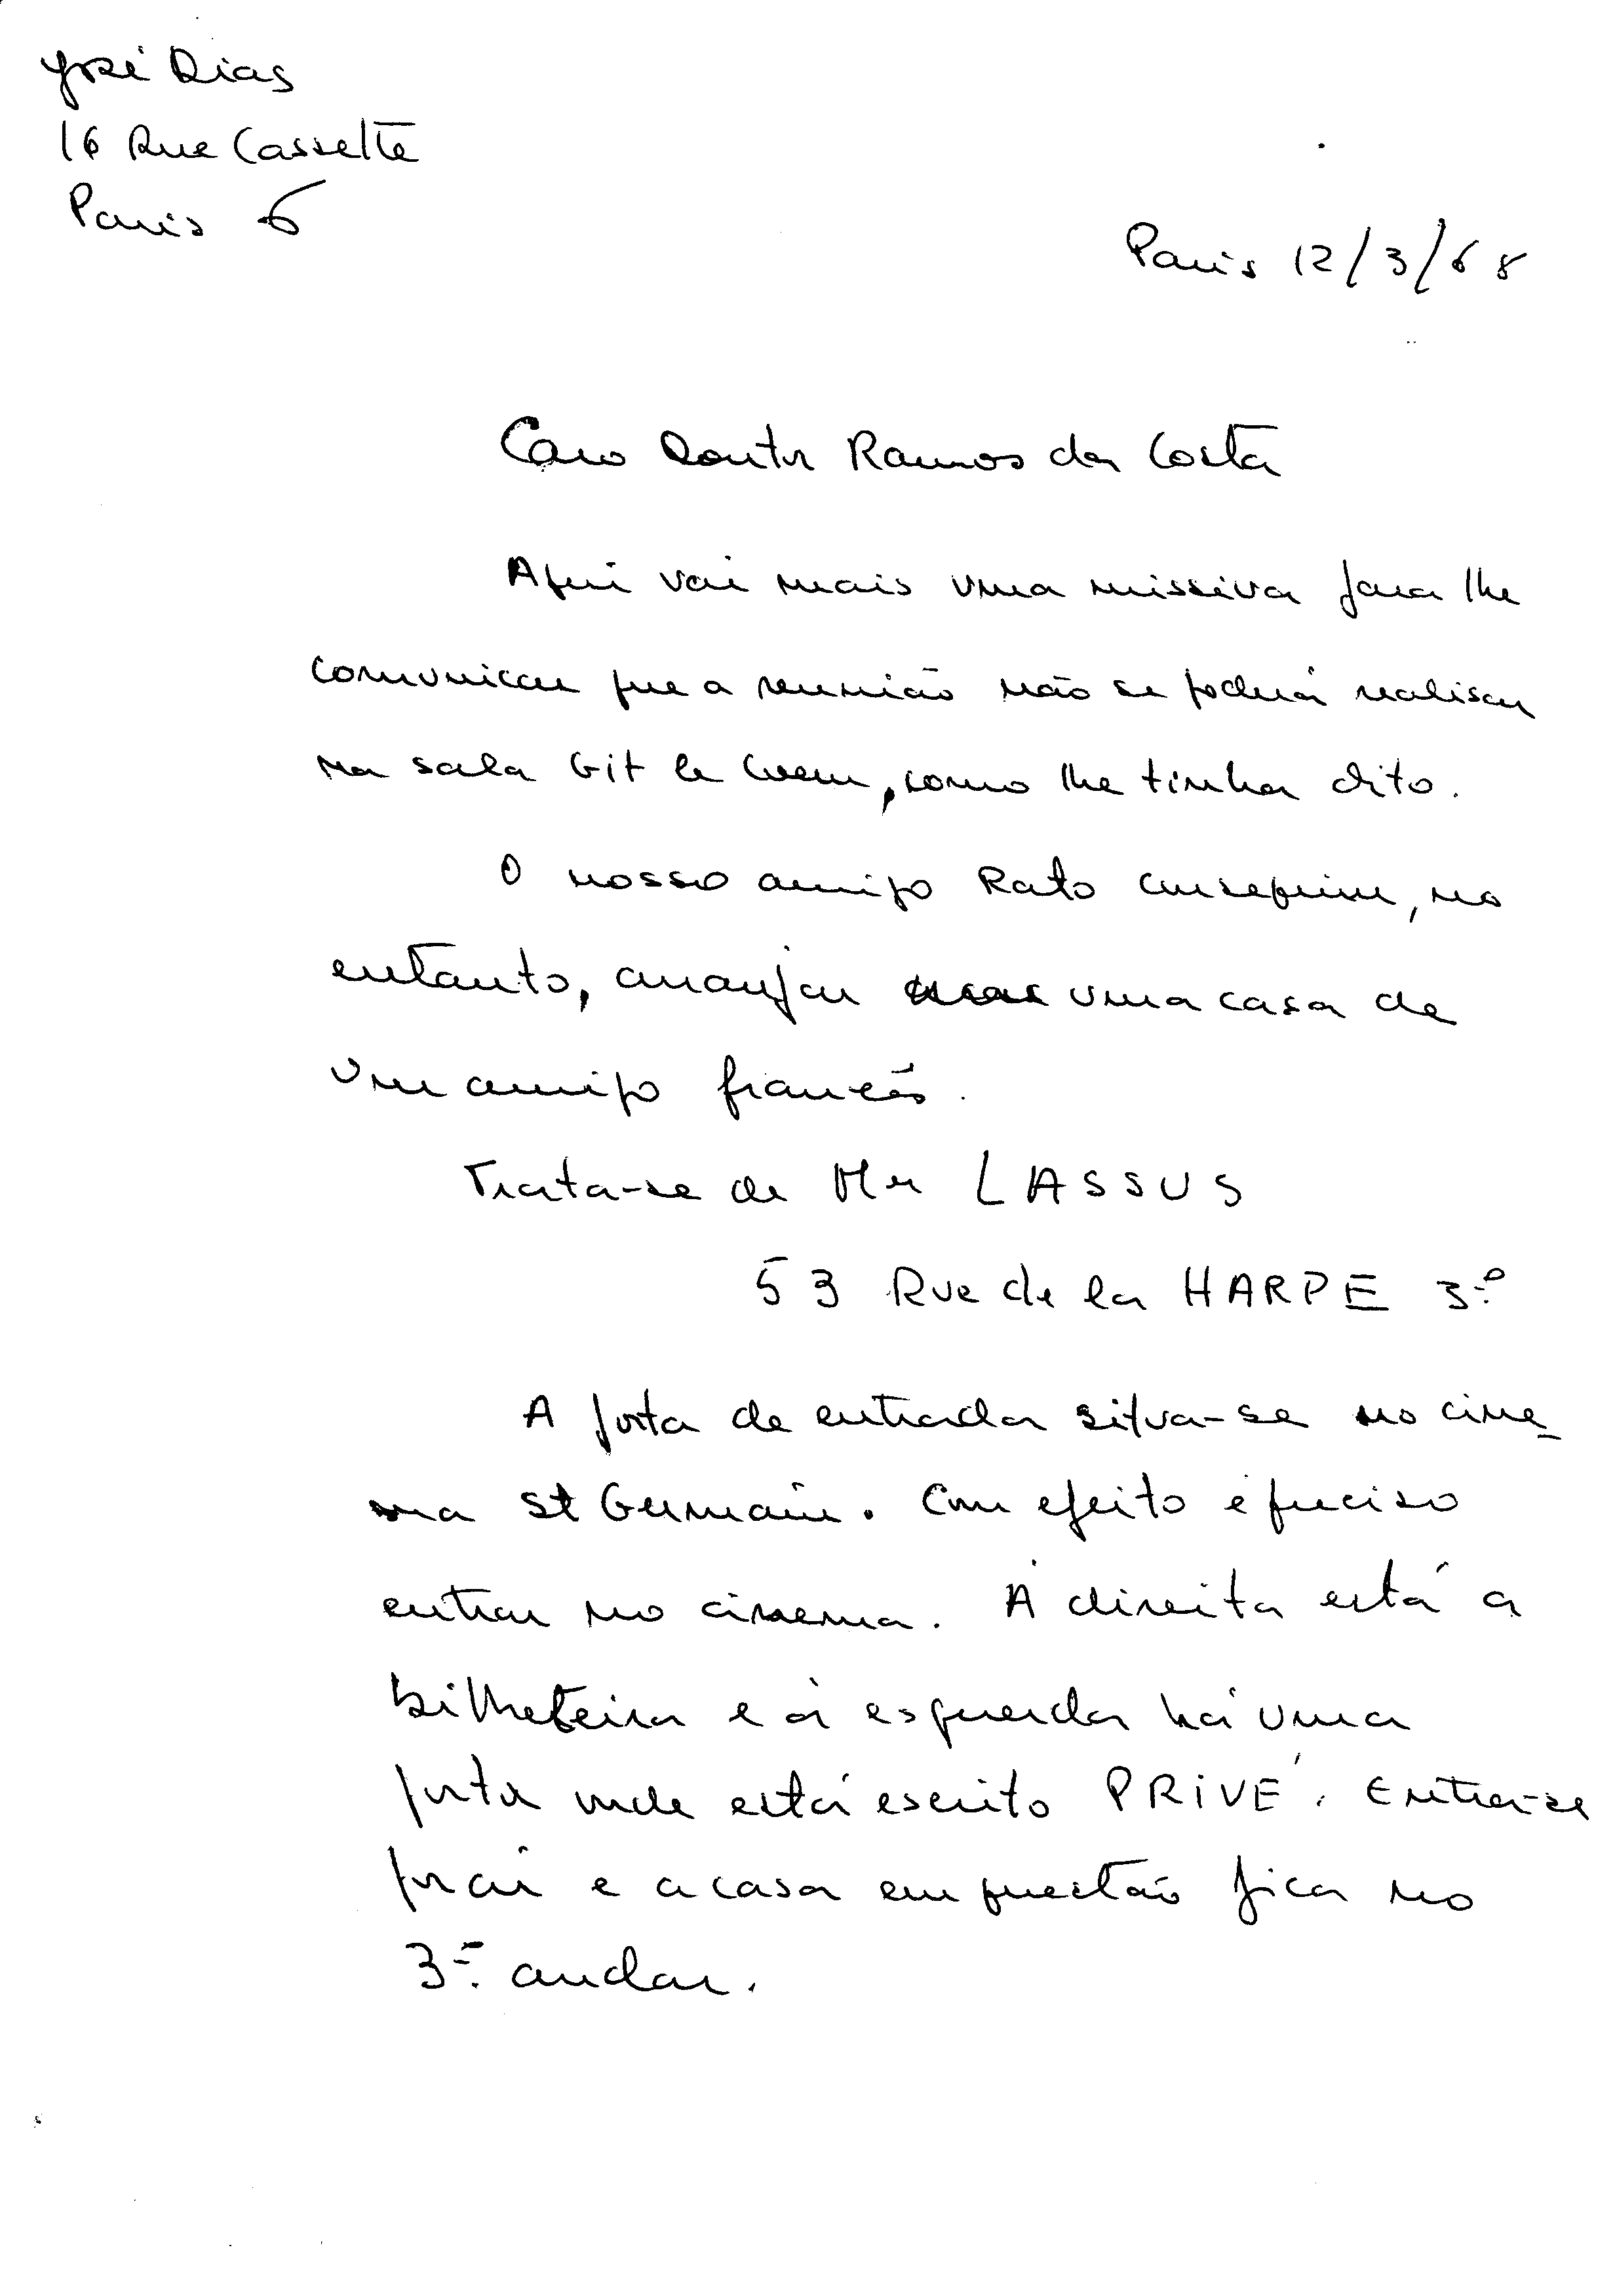 José Dias
16 Rue Cassette
Paris 6
Paris 12/3/68
Caro Doutor Ramos da Costa
Aqui vai mais uma missiva para lhe
comunicar que a reunião não se poderá realisar
na sala Git le Coeur, como lhe tinha dito.
O nosso amigo Rato conseguiu, no
entanto, arranjar uma casa de
um amigo francês.
Trata-se de Mr LASSUS
53 Rue de la HARPE 3.º
A porta de entrada situa-se no cine-
ma St Germain. Com efeito é preciso
entrar no cinema. À direita está a
bilheteira e à esquerda há uma
porta onde está escrito PRIVÉ. Entra-se
por aí e a casa em questão fica no
3.º andar.